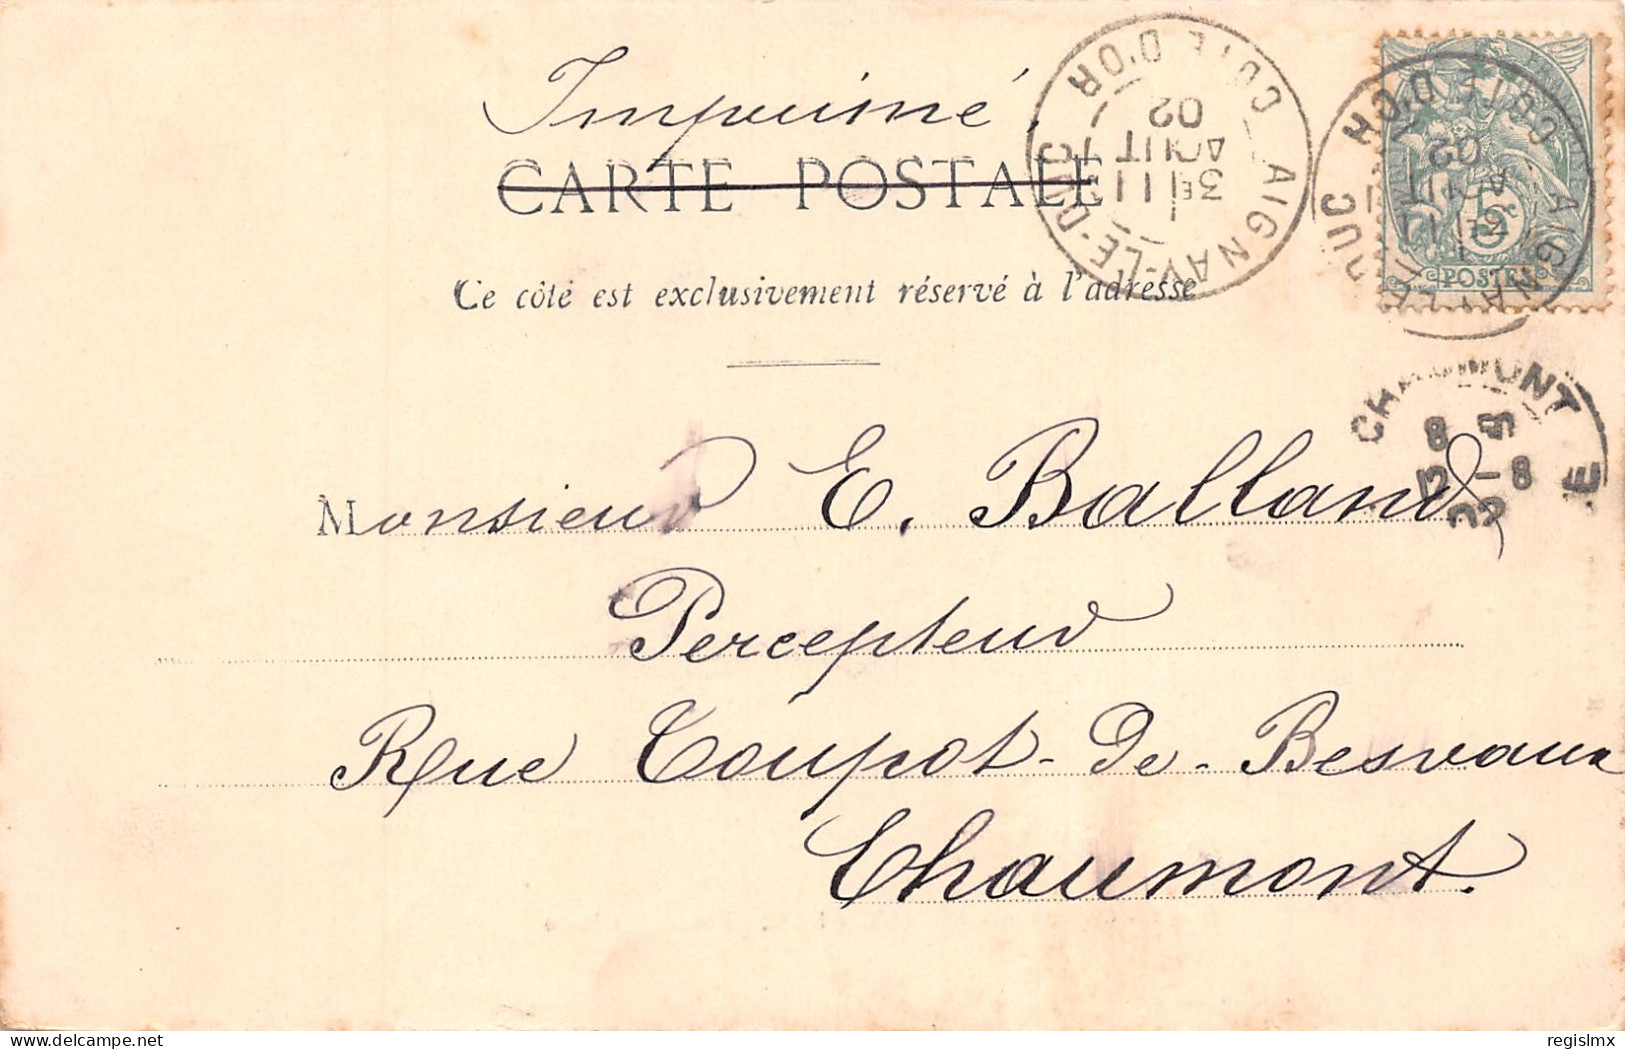 Imprimé.
CARTE POSTALE
Ce côté est exclusivement réservé à l'adresse
AIGNAY-LE-DUC COTE D'OR
3E 11
AOUT
02
AIGNAY-LE-DUC COTE D'OR
3E 11
AOUT
02
5c
POSTES
CHAUMONT
8 5
12 5-8
02
E
Monsieur E. Balland
Percepteur
Rue Toupot-De-Besvaux
Chaumont.
regislmx
delcampe.net